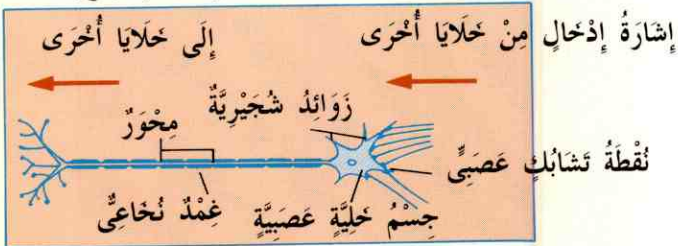 إِشَارَةُ إِدْخَالٍ مِنْ خَلَايَا أُخْرَى
إِلَى خَلَايَا أُخْرَى
زَوَائِدُ شُجَيْرِيَّةٌ
مِحْوَرٌ
نُقْطَةُ تَشَابُكٍ عَصَبِيٍّ
غِمْدٌ نُخَاعِيٌّ
جِسْمُ خَلِيَّةٍ عَصَبِيَّةٍ